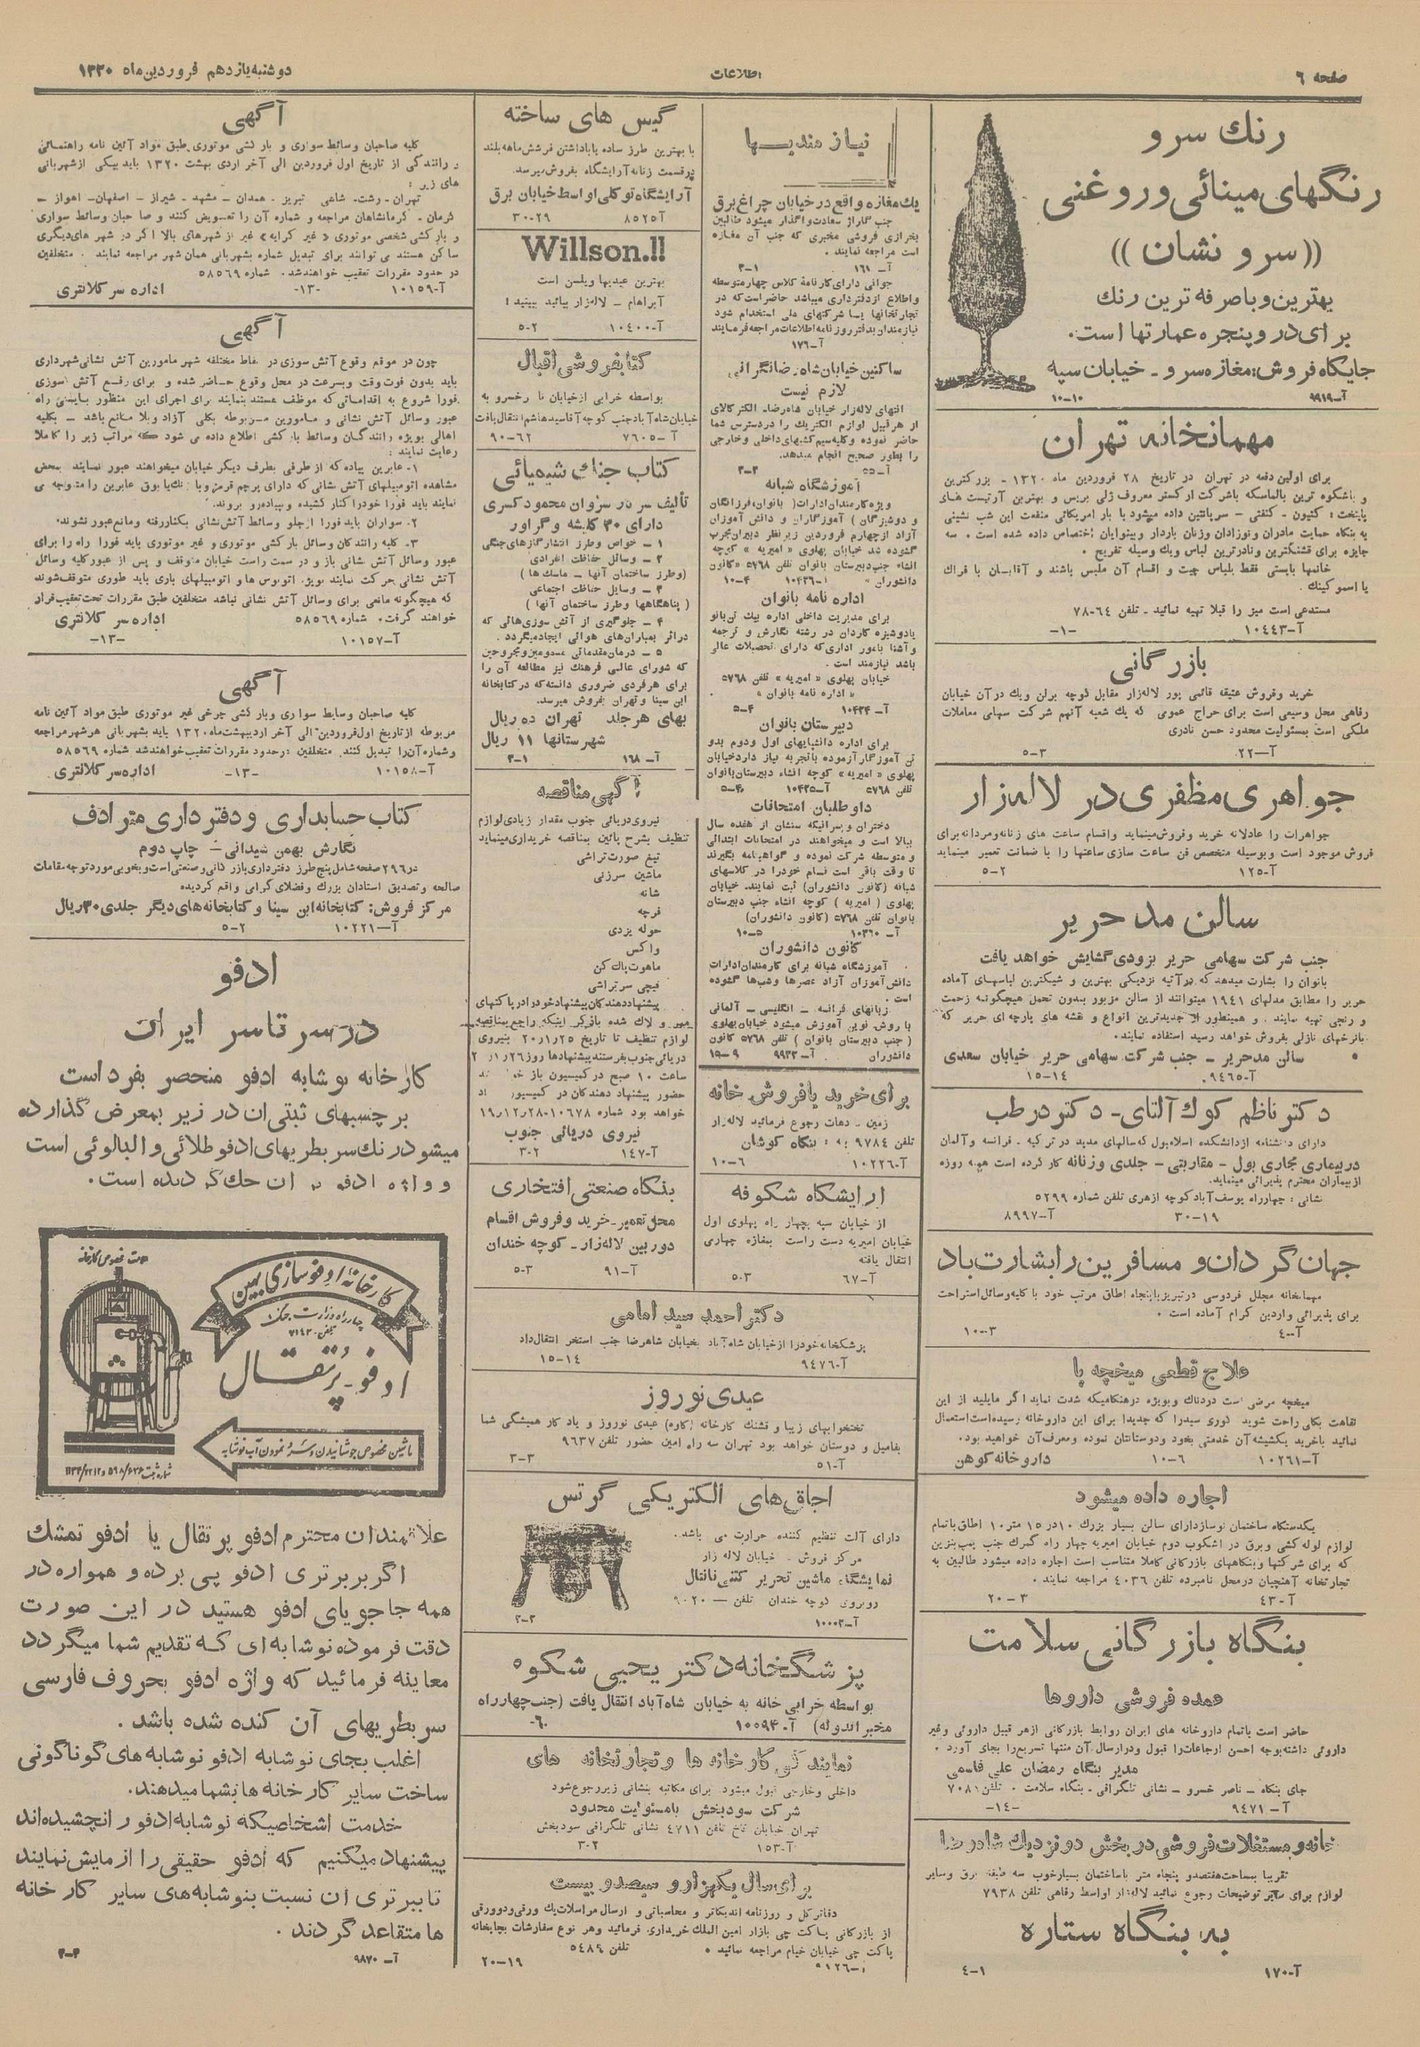 صفحه ۶
اطلاعات
دوشنبه یازدهم فروردین ماه ۱۳۲۰
رنك سرو
رنگهای مینائی و روغنی
((سرو نشان))
بهترین و باصرفه ترین رنك
برای در و پنجره عمارتها است.
جایگاه فروش: مغازه سرو ـ خیابان سپه
آ-۹۹۱۹ ۱۰-۱۰
مهمانخانه تهران
برای اولین دفعه در تهران در تاریخ ۲۸ فروردین ماه ۱۳۲۰ - بزرگترین
و باشکوه ترین بالماسکه باشرکت ارکستر معروف ژلی بریس و بهترین آرتیست های
پایتخت: کتیون ـ کنفتی ـ سرپانتین داده میشود با بار امریکائی منفعت این شب نشینی
به بنگاه حمایت مادران و نوزادان وزنان باردار و بینوایان اختصاص داده شده است. سه
جایزه برای قشنگترین و نادرترین لباس ویك وسیله تفریح.
خانمها بایستی فقط بلباس چیت و اقسام آن ملبس باشند و آقایان با فراك
یا اسموکینك.
مستدعی است میز را قبلا تهیه نمائید ـ تلفن ۶۴-۷۸
آ-۱۰۴۴۳ -۱-
بازرگانی
خرید و فروش عتیقه قائمی پور لاله زار مقابل کوچه برلن ویك در آن خیابان
رفاهی محل وسیعی است برای حراج عمومی که یك شعبه آنهم شرکت سهامی معاملات
ملکی است بمسئولیت محدود حسن نادری
آ-۲۲ ۳-۵
جواهری مظفری در لاله زار
جواهرات را عادلانه خرید و فروش مینماید و اقسام ساعت های زنانه و مردانه برای
فروش موجود است و بوسیله متخصص فن ساعت سازی ساعتها را با ضمانت تعمیر مینماید
آ-۱۲۵ ۲-۵
سالن مد حریر
جنب شرکت سهامی حریر بزودی گشایش خواهد یافت
بانوان را بشارت میدهد که در آتیه نزدیکی بهترین و شیکترین لباسهای آماده
حریر را مطابق مدلهای ۱۹۴۱ میتوانند از سالن مزبور بدون تحمل هیچگونه زحمت
و رنجی تهیه نمایند. و همینطور از جدیدترین انواع و نقشه های پارچه ای حریر که
بانرخهای نازلی بفروش خواهد رسید استفاده نمایند.
سالن مدحریر ـ جنب شرکت سهامی حریر خیابان سعدی
آ-۹۴۶۵ ۱۴-۱۵
دکتر ناظم کوك آلتای ـ دکتر در طب
دارای دانشنامه از دانشکده اسلامبول که سالهای مدید در ترکیه ـ فرانسه و آلمان
در بیماری مجاری بول ـ مقاربتی ـ جلدی و زنانه کار کرده است همه روزه
از بیماران محترم پذیرائی مینماید.
نشانی: چهارراه یوسف آباد کوچه ازهری تلفن شماره ۵۲۹۹
۱۹-۳۰ آ-۸۹۹۷
جهان گردان و مسافرین را بشارت باد
مهمانخانه مجلل فردوسی در تبریز با پنجاه اطاق مرتب خود با کلیه وسائل استراحت
برای پذیرائی واردین کرام آماده است.
آ-۴۰ ۳-۱۰
علاج قطعی میخچه پا
میخچه مرضی است دردناك و بویژه در هنگامیکه شدت نماید اگر مایلید از این
نقاهت بکلی راحت شوید فوری سیدرا که جدیدا برای این داروخانه رسیده است استعمال
نمائید باخرید یکشیشه آن خدمتی بخود و دوستانتان نموده و معرف آن خواهید بود.
آ-۱۰۲۶۱ ۶-۱۰ داروخانه کوهن
اجاره داده میشود
یکدستگاه ساختمان نوساز دارای سالن بسیار بزرك ۱۰ در ۱۵ متر ۱۰ اطاق باتمام
لوازم لوله کشی و برق در اشکوب دوم خیابان امیریه چهار راه گمرك جنب پمپ بنزین
که برای شرکتها و بنگاههای بازرگانی کاملا متناسب است اجاره داده میشود طالبین به
تجارتخانه آهنچیان در محل نامبرده تلفن ۴۰۳۶ مراجعه نمایند.
آ-۴۳ ۳-۲۰
بنگاه بازرگانی سلامت
عمده فروشی داروها
حاضر است باتمام داروخانه های ایران روابط بازرگانی از هر قبیل داروئی و غیر
داروئی داشته بوجه احسن ارجاعات را قبول و در ارسال آن منتها تسریع را بجای آورد.
مدیر بنگاه رمضان علی قاسمی
جای بنگاه ـ ناصر خسرو ـ نشانی تلگرافی ـ بنگاه سلامت. تلفن ۷۰۸۱
آ-۹۴۷۱ -۱۴-
خانه و مستغلات فروشی در بخش دو نزدیك شاهرضا
تقریبا بمساحت هفتصد و پنجاه متر باساختمان بسیار خوب سه طبقه برق و سایر
لوازم برای سایر توضیحات رجوع نمائید لاله زار اواسط رفاهی تلفن ۷۹۳۸
به بنگاه ستاره
آ-۱۷۰ ۱-۴
نیازمندیها
یك مغازه واقع در خیابان چراغ برق
جنب گاراژ سعادت واگذار میشود طالبین
بخرازی فروشی مخبری که جنب آن مغازه
است مراجعه نمایند.
آ-۱۶۱ ۱-۳
جوانی دارای کارنامه کلاس چهار متوسطه
و اطلاع از دفترداری میباشد حاضر است که در
تجارتخانها یا شرکتهای ملی استخدام شود
نیازمندان بدفتر روزنامه اطلاعات مراجعه فرمایند
آ-۱۷۶
ساکنین خیابان شاه رضا نگرانی
لازم نیست
انتهای لاله زار خیابان شاهرضا ـ الکتر کالای
از هر قبیل لوازم الکتریك را در دسترس شما
حاضر نموده و کلیه سیم کشیهای داخلی و خارجی
را بطور صحیح انجام میدهد.
آ-۵۵ ۲-۳
آموزشگاه شبانه
ویژه کارمندان ادارات (بانوان، فرزانگان
و دوشیزگان) آموزگاران و دانش آموزان
آزاد از چهارم فروردین زیر نظر دبیران مجرب
گشوده شد خیابان پهلوی «امیریه» کوچه
انشاء جنب دبیرستان بانوان تلفن ۵۷۶۸ «کانون
دانشوران» آ-۱۰۴۳۶ ۴-۱۰
اداره نامه بانوان
برای مدیریت داخلی اداره بیك تن بانو
یا دوشیزه کاردان در رشته نگارش و ترجمه
و آشنا بامور اداری که دارای تحصیلات عالی
باشد نیازمند است.
خیابان پهلوی «امیریه» تلفن ۵۷۶۸
«اداره نامه بانوان».
آ-۱۰۴۳۴ ۴-۵
دبیرستان بانوان
برای اداره دانشپایهای اول و دوم بدو
تن آموزگار آزموده باتجربه نیاز دارد خیابان
پهلوی «امیریه» کوچه انشاء دبیرستان بانوان
تلفن ۵۷۶۸ آ-۱۰۴۳۵ ۴-۵
داوطلبان امتحانات
دختران و پسرانیکه سنشان از هفده سال
ببالا است و میخواهند در امتحانات ابتدائی
و متوسطه شرکت نموده و گواهینامه بگیرند
تا وقت باقی است نام خود را در کلاسهای
شبانه (کانون دانشوران) ثبت نمایند. خیابان
پهلوی (امیریه) کوچه انشاء جنب دبیرستان
بانوان تلفن ۵۷۶۸ (کانون دانشوران)
آ-۱۰۳۶۰ ۵-۱۰
کانون دانشوران
آموزشگاه شبانه برای کارمندان ادارات
دانش آموزان آزاد عصرها و شبها گشوده
است.
زبانهای فرانسه ـ انگلیسی ـ آلمانی
با روش نوین آموزش میشود خیابان پهلوی
(جنب دبیرستان بانوان) تلفن ۵۷۶۸ کانون
دانشوران آ-۹۹۳۳ ۹-۱۵
برای خرید یا فروش خانه
زمین و دهات رجوع فرمائید لاله زار
تلفن ۹۷۸۴ بنگاه کوشان
آ-۱۰۲۲۶ ۶-۱۰
ارایشگاه شکوفه
از خیابان سپه بچهار راه پهلوی اول
خیابان امیریه دست راست بمغازه چهاری
انتقال یافته
آ-۶۷ ۳-۵
گیس های ساخته
با بهترین طرز ساده یا باداشتن فرشش ماهه بلند
در قسمت زنانه آرایشگاه بفروش میرسد.
آرایشگاه توکلی اواسط خیابان برق
آ-۸۵۲۵ ۲۹-۳۰
Willson.!!
بهترین عیدیها ویلسن است
آبراهام ـ لاله زار بیائید ببینید!
آ-۱۰۴۰۰ ۲-۵
کتابفروشی اقبال
بواسطه خرابی از خیابان ناصرخسرو به
خیابان شاه آباد جنب کوچه آقا سید هاشم انتقال یافت
آ-۷۶۰۵ ۶۲-۹۰
کتاب جنك شیمیائی
تألیف سردار سروان محمود کسری
دارای ۳۰ کلیشه و گراور
۱ - خواص و طرز انتشار گازهای جنگی
۲ - وسائل حفاظت انفرادی
(و طرز ساختمان آنها ـ ماسك ها)
۳ - وسایل حفاظت اجتماعی
(پناهگاهها و طرز ساختمان آنها)
۴ - جلوگیری از آتش سوزی هائی که
در اثر بمباران های هوائی ایجاد میگردد.
۵ - درمان مقدماتی مسمومین و مجروحین
که شورای عالی فرهنك نیز مطالعه آن را
برای هر فردی ضروری دانسته که در کتابخانه
ابن سینا و تهران بفروش میرسد.
بهای هر جلد تهران ده ریال
شهرستانها ۱۱ ریال
آ-۱۶۸ ۱-۳
آگهی مناقصه
نیروی دریائی جنوب مقدار زیادی لوازم
تنظیف بشرح پائین بمناقصه خریداری مینماید
تیغ صورت تراشی
ماشین سرزنی
شانه
فرچه
حوله یزدی
واکس
ماهوت پاك کن
قیچی سر تراشی
پیشنهاد دهندگان پیشنهاد خود را در پاکتهای
مهر و لاك شده با ذکر اینکه راجع بمناقصه
لوازم تنظیف تا تاریخ ۲۰/۱/۲۵ بنیروی
دریائی جنوب بفرستند پیشنهادها روز ۲۶/۱/
ساعت ۱۰ صبح در کمیسیون باز
حضور پیشنهاد دهندگان در کمیسیون
خواهد بود شماره ۱۰۶۷۸-۱۹/۱۲/۲۸
نیروی دریائی جنوب
آ-۱۴۷ ۲-۳
بنگاه صنعتی افتخاری
محل تعمیر ـ خرید و فروش اقسام
دوربین لاله زار ـ کوچه خندان
آ-۹۱ ۳-۵
دکتر احمد سید امامی
پزشکخانه خود را از خیابان شاه آباد بخیابان شاهرضا جنب استخر انتقال داد
آ-۹۴۷۶ ۱۴-۱۵
عیدی نوروز
تختخوابهای زیبا و قشنك کارخانه (کاوه) عیدی نوروز و یادگار همیشگی شما
بفامیل و دوستان خواهد بود تهران سه راه امین حضور تلفن ۹۶۳۷
آ-۵۱ ۳-۳
اجاق های الکتریکی گرتس
دارای آلت تنظیم کننده حرارت می باشد.
مرکز فروش ـ خیابان لاله زار
نمایشگاه ماشین تحریر کنتی نانتال
روبروی کوچه خندان تلفن
آ-۱۰۰۰۳ ۲-۳
پزشگخانه دکتر یحیی شکوه
بواسطه خرابی خانه به خیابان شاه آباد انتقال یافت (جنب چهارراه
مخبرالدوله) آ-۱۰۰۹۴ -۶۰
نمایندگی کارخانه ها و تجارتخانه های
داخلی و خارجی قبول میشود برای مکاتبه بنشانی زیر رجوع شود
شرکت سودبخش بامسئولیت محدود
تهران خیابان کاخ تلفن ۴۷۱۱ نشانی تلگرافی سودبخش
آ-۱۵۳ ۲-۳
برای سال یکهزار و سیصد و بیست
دفاتر کل و روزنامه اندیکاتر و محاسباتی و ارسال مراسلات یك ورقی و دو ورقی
از بازرگانی پاکت چی بازار امین الملك خریداری فرمائید و هر نوع سفارشات بچاپخانه
پاکت چی خیابان خیام مراجعه نمائید تلفن ۵۴۸۹
۱۹-۲۰
آگهی
کلیه صاحبان وسائط سواری و بار کشی موتوری طبق مواد آئین نامه راهنمائی
و رانندگی از تاریخ اول فروردین الی آخر اردی بهشت ۱۳۲۰ باید بیکی از شهربانی
های زیر:
تهران ـ رشت ـ شاهی تبریز ـ همدان ـ مشهد ـ شیراز ـ اصفهان ـ اهواز ـ
کرمان ـ کرمانشاهان مراجعه و شماره آن را تعویض کنند و صاحبان وسائط سواری
و بارکشی شخصی موتوری «غیر کرایه» غیر از شهرهای بالا اگر در شهر های دیگری
ساکن هستند می توانند برای تبدیل شماره بشهربانی همان شهر مراجعه نمایند. متخلفین
در حدود مقررات تعقیب خواهند شد. شماره ۵۸۵۶۹
آ-۱۰۱۵۹ -۱۳- اداره سر کلانتری
آگهی
چون در موقع وقوع آتش سوزی در نقاط مختلفه شهر مامورین آتش نشانی شهرداری
باید بدون فوت وقت و بسرعت در محل وقوع حاضر شده و برای رفع آتش سوزی
فورا شروع به اقداماتی که موظف هستند بنمایند برای اجرای این منظور بایستی راه
عبور وسائل آتش نشانی و مامورین مربوطه بکلی آزاد و بلا مانع باشد ـ بکلیه
اهالی بویژه رانندگان وسائط بارکشی اطلاع داده می شود که مراتب زیر را کاملا
رعایت نمایند:
۱- عابرین پیاده که از طرفی بطرف دیگر خیابان میخواهند عبور نمایند بمحض
مشاهده اتومبیلهای آتش نشانی که دارای پرچم قرمز و با زنك یا بوق عابرین را متوجه می
نمایند باید فورا خود را کنار کشیده و بپیاده رو بروند.
۲- سواران باید فورا از جلو وسائط آتش نشانی بکنار رفته و مانع عبور نشوند.
۳- کلیه رانندگان وسائل بار کشی موتوری و غیر موتوری باید فورا راه را برای
عبور وسائل آتش نشانی باز و در سمت راست خیابان متوقف و پس از عبور کلیه وسائل
آتش نشانی حرکت نمایند بویژه اتوبوس ها و اتومبیلهای باری باید طوری متوقف شوند
که هیچگونه مانعی برای وسائل آتش نشانی نباشد متخلفین طبق مقررات تحت تعقیب قرار
خواهند گرفت. شماره ۵۸۵۶۹ اداره سر کلانتری
آ-۱۰۱۵۷ -۱۳-
آگهی
کلیه صاحبان وسایط سواری و بار کشی چرخی غیر موتوری طبق مواد آئین نامه
مربوطه از تاریخ اول فروردین الی آخر اردیبهشت ماه ۱۳۲۰ باید بشهربانی هر شهر مراجعه
و شماره آن را تبدیل کنند. متخلفین در حدود مقررات تعقیب خواهند شد شماره ۵۸۵۶۹
آ-۱۰۱۵۸ -۱۳- اداره سر کلانتری
کتاب حسابداری و دفترداری مترادف
نگارش بهمن شیدانی ـ چاپ دوم
در ۲۹۶ صفحه شامل پنج طرز دفترداری بازرگانی و صنعتی است و بخوبی مورد توجه مقامات
صالحه و تصدیق استادان بزرك و فضلای گرامی واقع گردیده
مرکز فروش: کتابخانه ابن سینا و کتابخانه های دیگر جلدی ۳۰ ریال
آ-۱۰۲۲۱ ۲-۵
ادفو
در سر تاسر ایران
کارخانه نوشابه ادفو منحصر بفرد است
برچسبهای ثبتی ان در زیر بمعرض گذارده
میشود رنك سر بطریهای ادفو طلائی و البالوئی است
و واژه ادفو بر ان حك گردیده است.
علامت مخصوص کارخانه
کارخانه ادفو سازی بهمن
چهارراه وزارت جنگ
تلفن ۷۱۴۳
ادفو ـ پرتقال
ماشین مخصوص جوشانیدن و سرد نمودن آب نوشابه
علاقمندان محترم ادفو پرتقال یا ادفو تمشك
اگر ببرتری ادفو پی برده و همواره در
همه جا جویای ادفو هستید در این صورت
دقت فرموده نوشابه ای که تقدیم شما میگردد
معاینه فرمائید که واژه ادفو بحروف فارسی
سر بطریهای آن کنده شده باشد.
اغلب بجای نوشابه ادفو نوشابه های گوناگونی
ساخت سایر کارخانه ها بشما میدهند.
خدمت اشخاصیکه نوشابه ادفو را نچشیده اند
پیشنهاد میکنیم که ادفو حقیقی را ازمایش نمایند
تا ببرتری ان نسبت بنوشابه های سایر کارخانه
ها متقاعد گردند.
آ-۹۸۷۰ ۴-۴